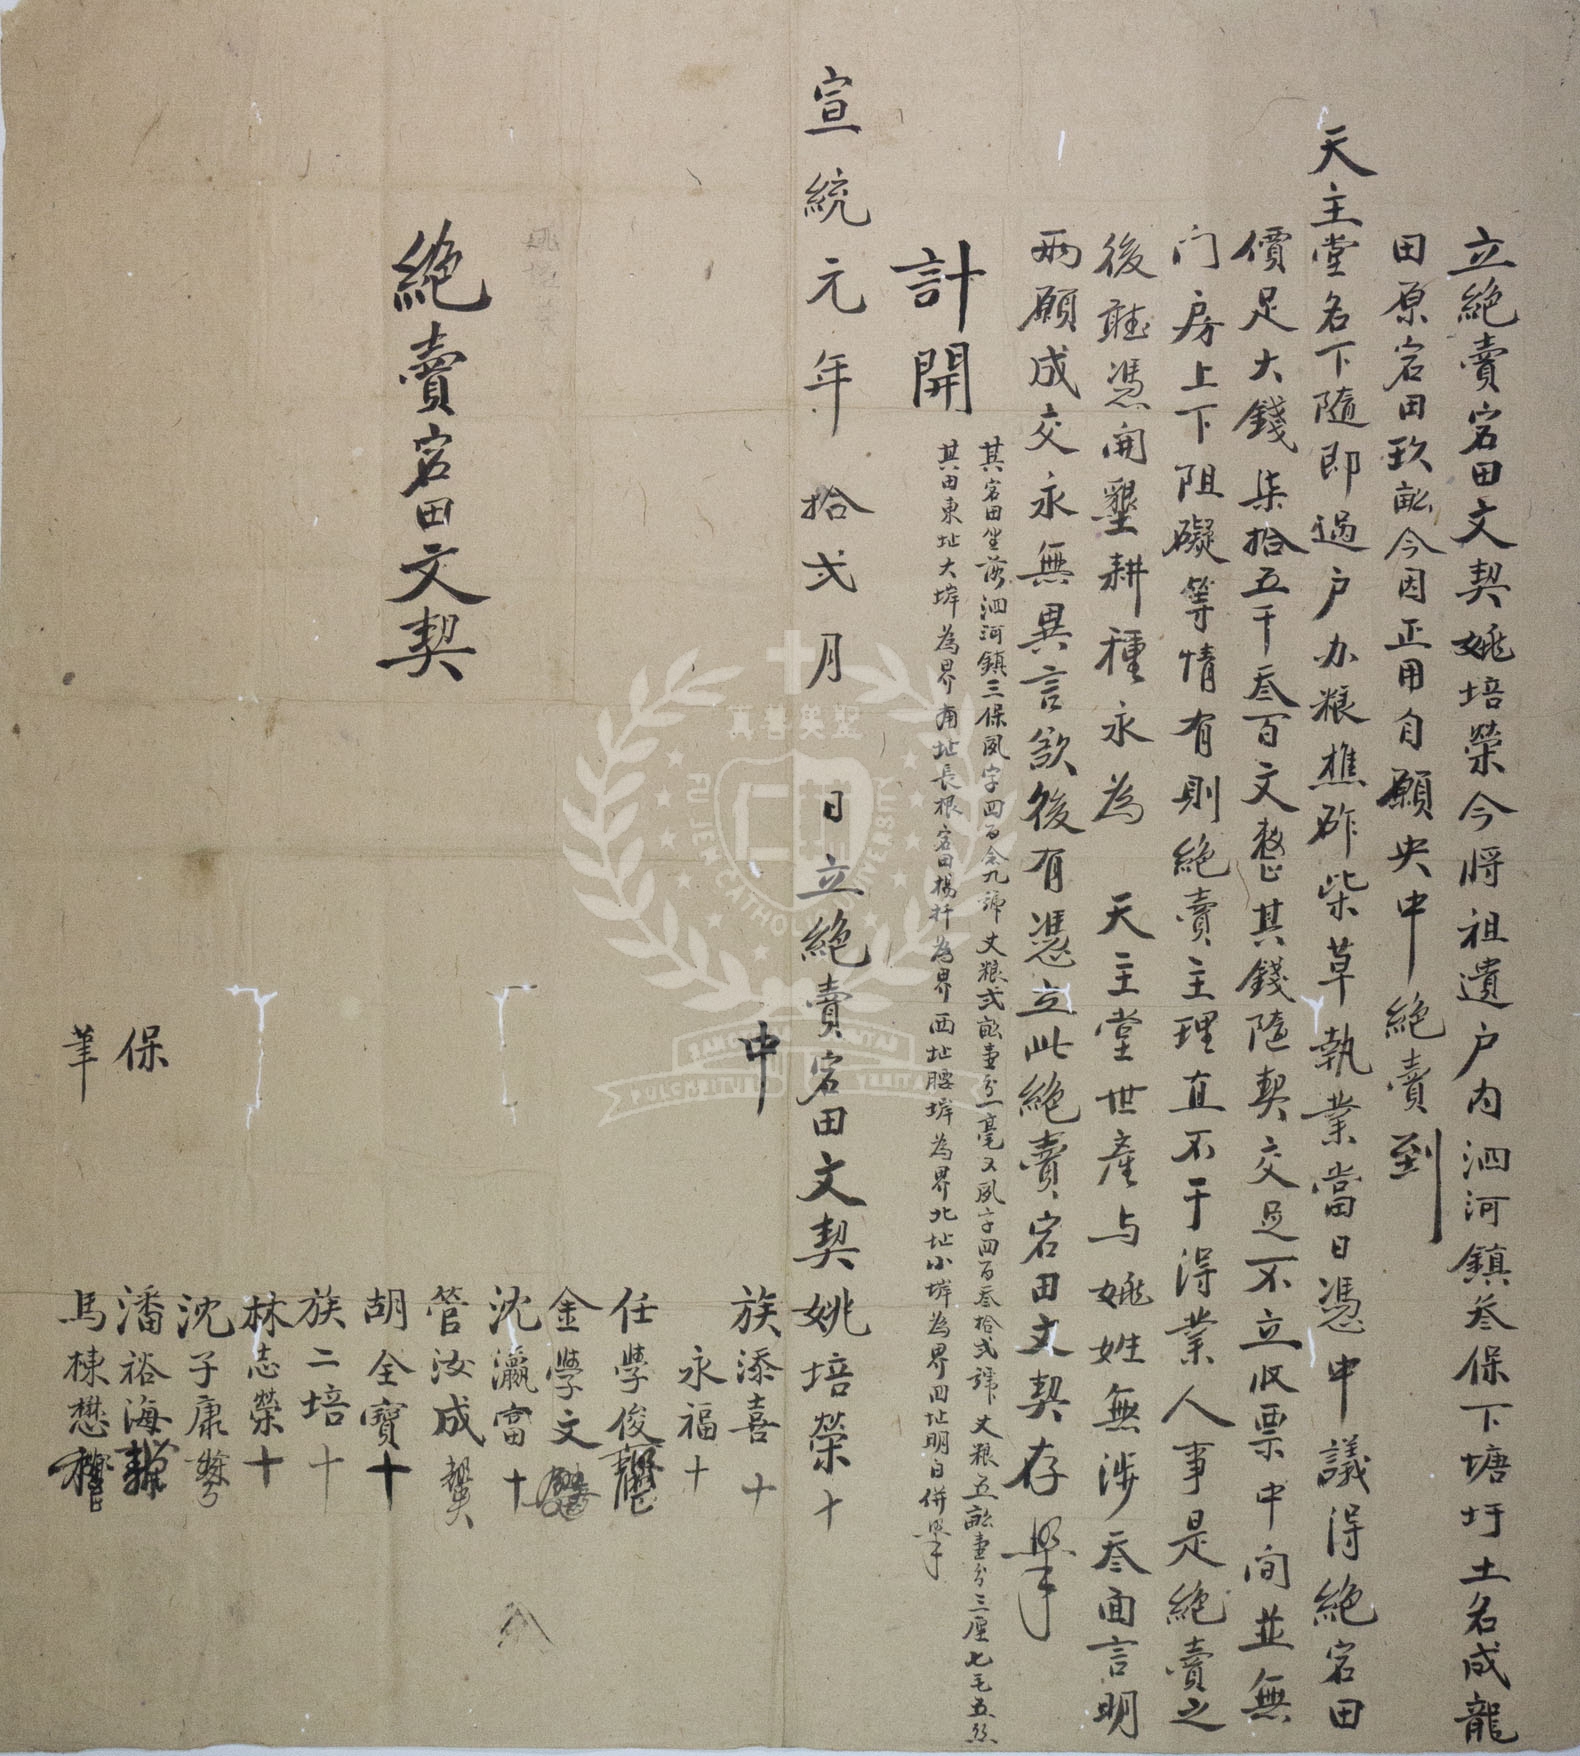 立絕賣宕田文契姚培榮今將祖遺户内泗河鎮叁保下塘圩土名成龍
田原宕田玖畝今因正用自願央中絕賣到
天主堂名下隨即過户办粮樵斫柴草執業當日憑中議得絕宕田
價足大錢柒拾五千叁百文整其錢隨契交足不立收票中间並無
门房上下阻礙等情有則絕賣主理直不干得業人事是絕賣之
後聽憑開墾耕種永為 天主堂世產与姚姓無涉叁面言明
兩願成交永無異言欲後有憑立此絕賣宕田文契存照
計開
其宕田坐落泗河鎮三保夙字四百念九號丈粮弍畝壹分一毫又夙字四百叁拾弍號丈粮五畝壹分三厘七毛五絲
其田東址大塝為界南址長根宕田楊扦為界西址腰塝為界北址小塝為界四址明白併照
宣統元年拾弍月 日立絕賣宕田文契姚培榮十
中
族添喜十
永福十
任學俊
金學文
沈瀛富十
管汝成
胡全寶十
族二培十
林志榮十
沈子康
保 潘裕海
筆 馬棟懋
絕賣宕田文契
真善美聖
FU JEN CATHOLIC UNIVERSITY